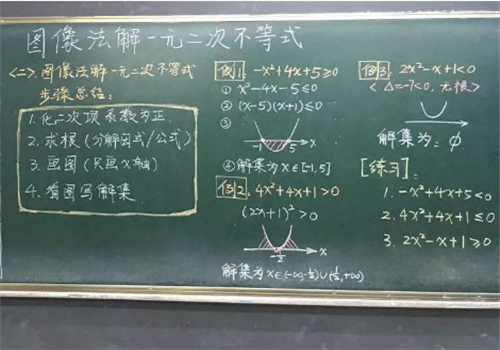 图像法解一元二次不等式
<二>.图像法解一元二次不等式
步骤总结:
1.化二次项系数为正.
2.求根(分解因式/公式)
3.画图(只画x轴)
4.看图写解集
例1. -x²+4x+5≥0
① x²-4x-5≤0
② (x-5)(x+1)≤0
③
-1 5 x
④解集为x∈[-1,5]
例2. 4x²+4x+1>0
(2x+1)²>0
-½ x
解集为x∈(-∞,-½)∪(½,+∞)
例3. 2x²-x+1<0
<Δ=-7<0,无根>
解集为:∅
[练习]:
1. -x²+4x+5<0
2. 4x²+4x+1≤0
3. 2x²-x+1>0